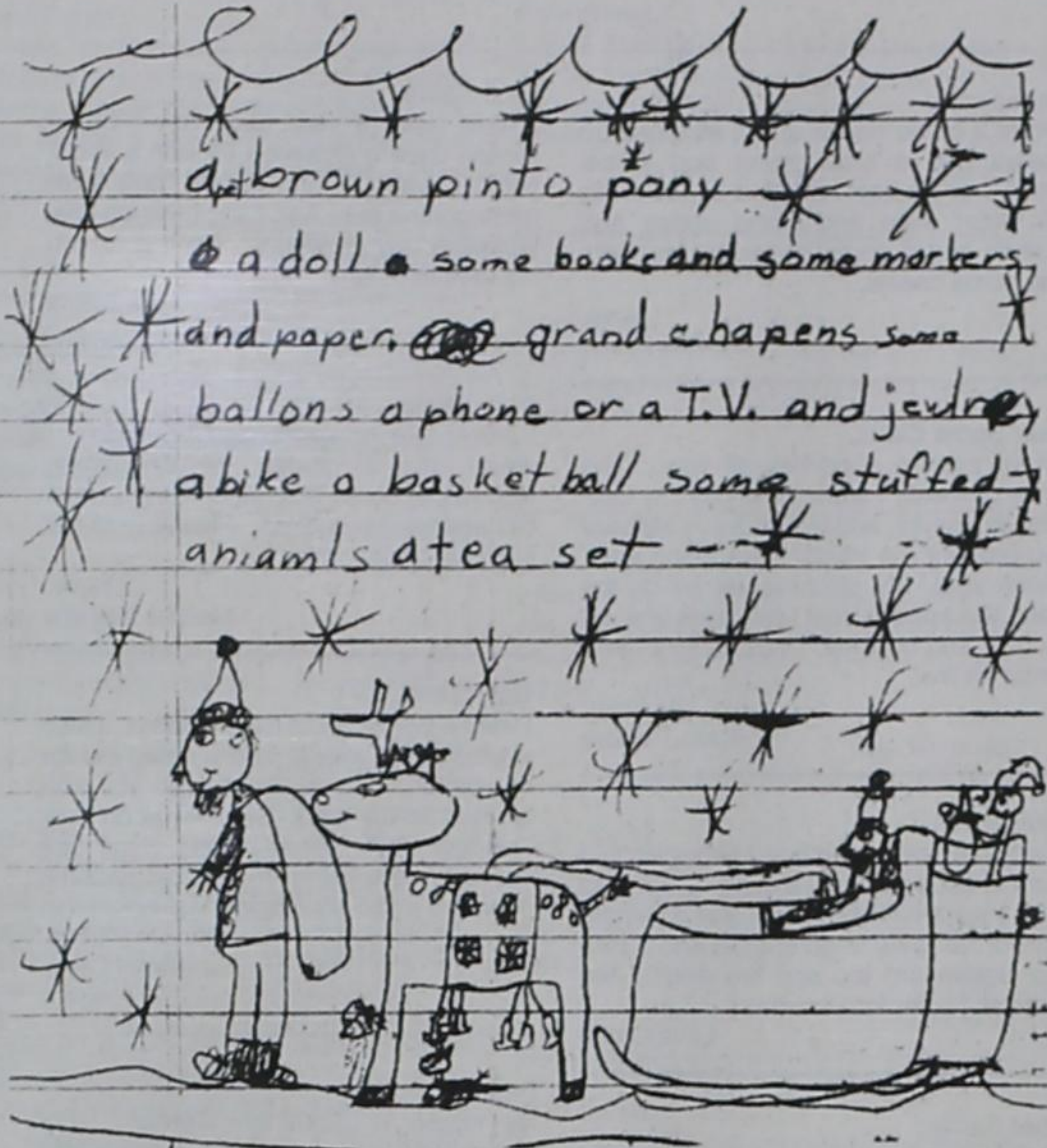 a pet brown pinto pony
a doll some books and some markers
and paper. grand chapens some
ballons a phone or a T.V. and jewlrey
a bike a basket ball some stuffed
aniamls a tea set